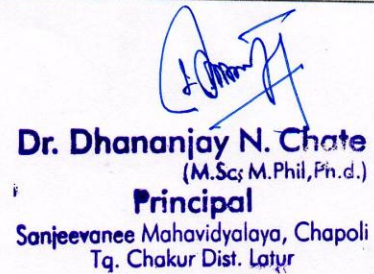 Dr. Dhananjay N. Chate
(M.Sc; M.Phil,Ph.d.)
Principal
Sanjeevanee Mahavidyalaya, Chapoli
Tq. Chakur Dist. Latur